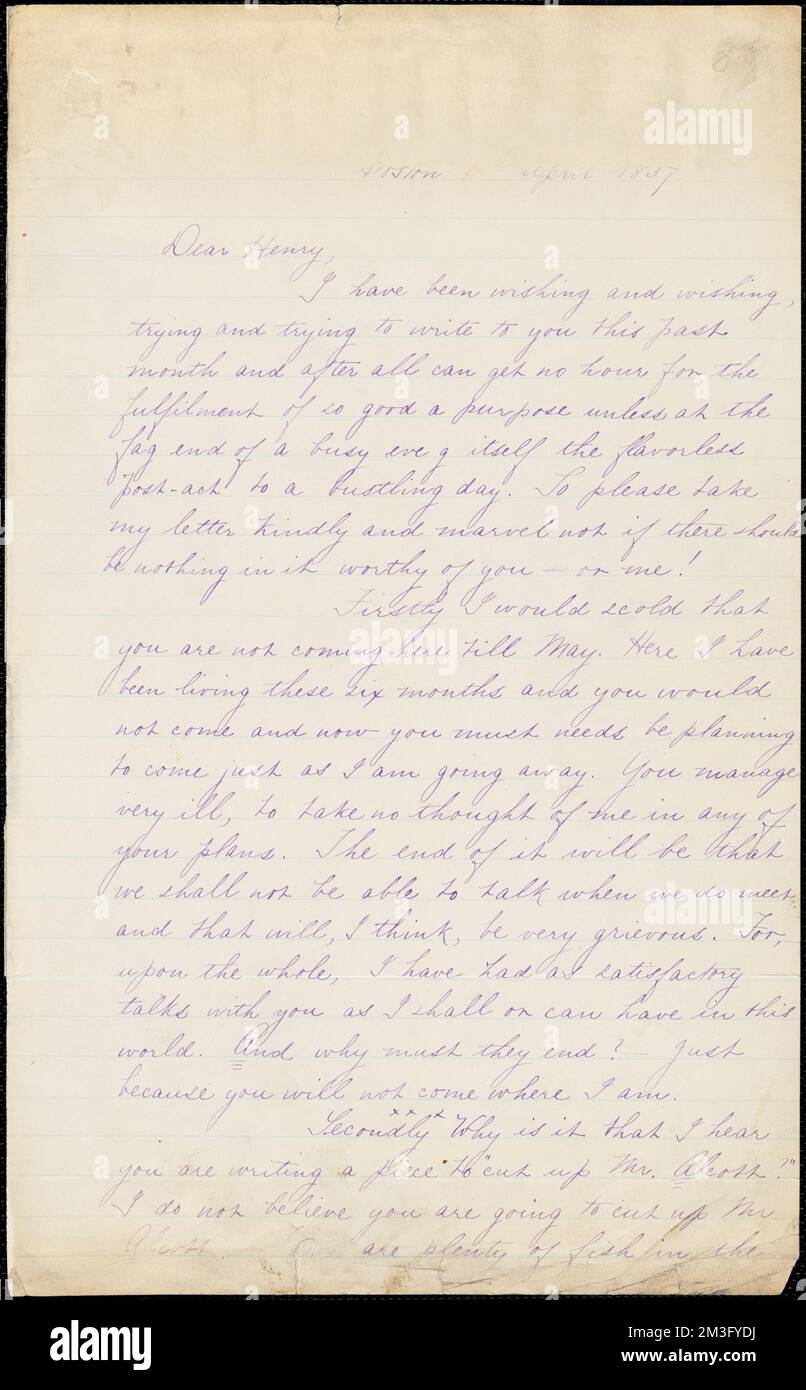 8
Boston April 1837
Dear Henry,
I have been wishing and wishing,
trying and trying to write to you this past
month and after all can get no hour for the
fulfilment of so good a purpose unless at the
fag end of a busy eve g itself the flavorless
post-act to a bustling day. So please take
my letter kindly and marvel not if there should
be nothing in it worthy of you — or me!
Firstly I would scold that
you are not coming here till May. Here I have
been living these six months and you would
not come and now you must needs be planning
to come just as I am going away. You manage
very ill, to take no thought of me in any of
your plans. The end of it will be that
we shall not be able to talk when we do meet
and that will, I think, be very grievous. For,
upon the whole, I have had as satisfactory
talks with you as I shall or can have in this
world. And why must they end? — Just
because you will not come where I am.
xx x
Secondly Why is it that I hear
you are writing a piece to "cut up Mr. Alcott?"
I do not believe you are going to cut up Mr.
Alcott. are plenty of fish in the
alamy
alamy
alamy
alamy
Image ID: 2M3FYDJ
www.alamy.com